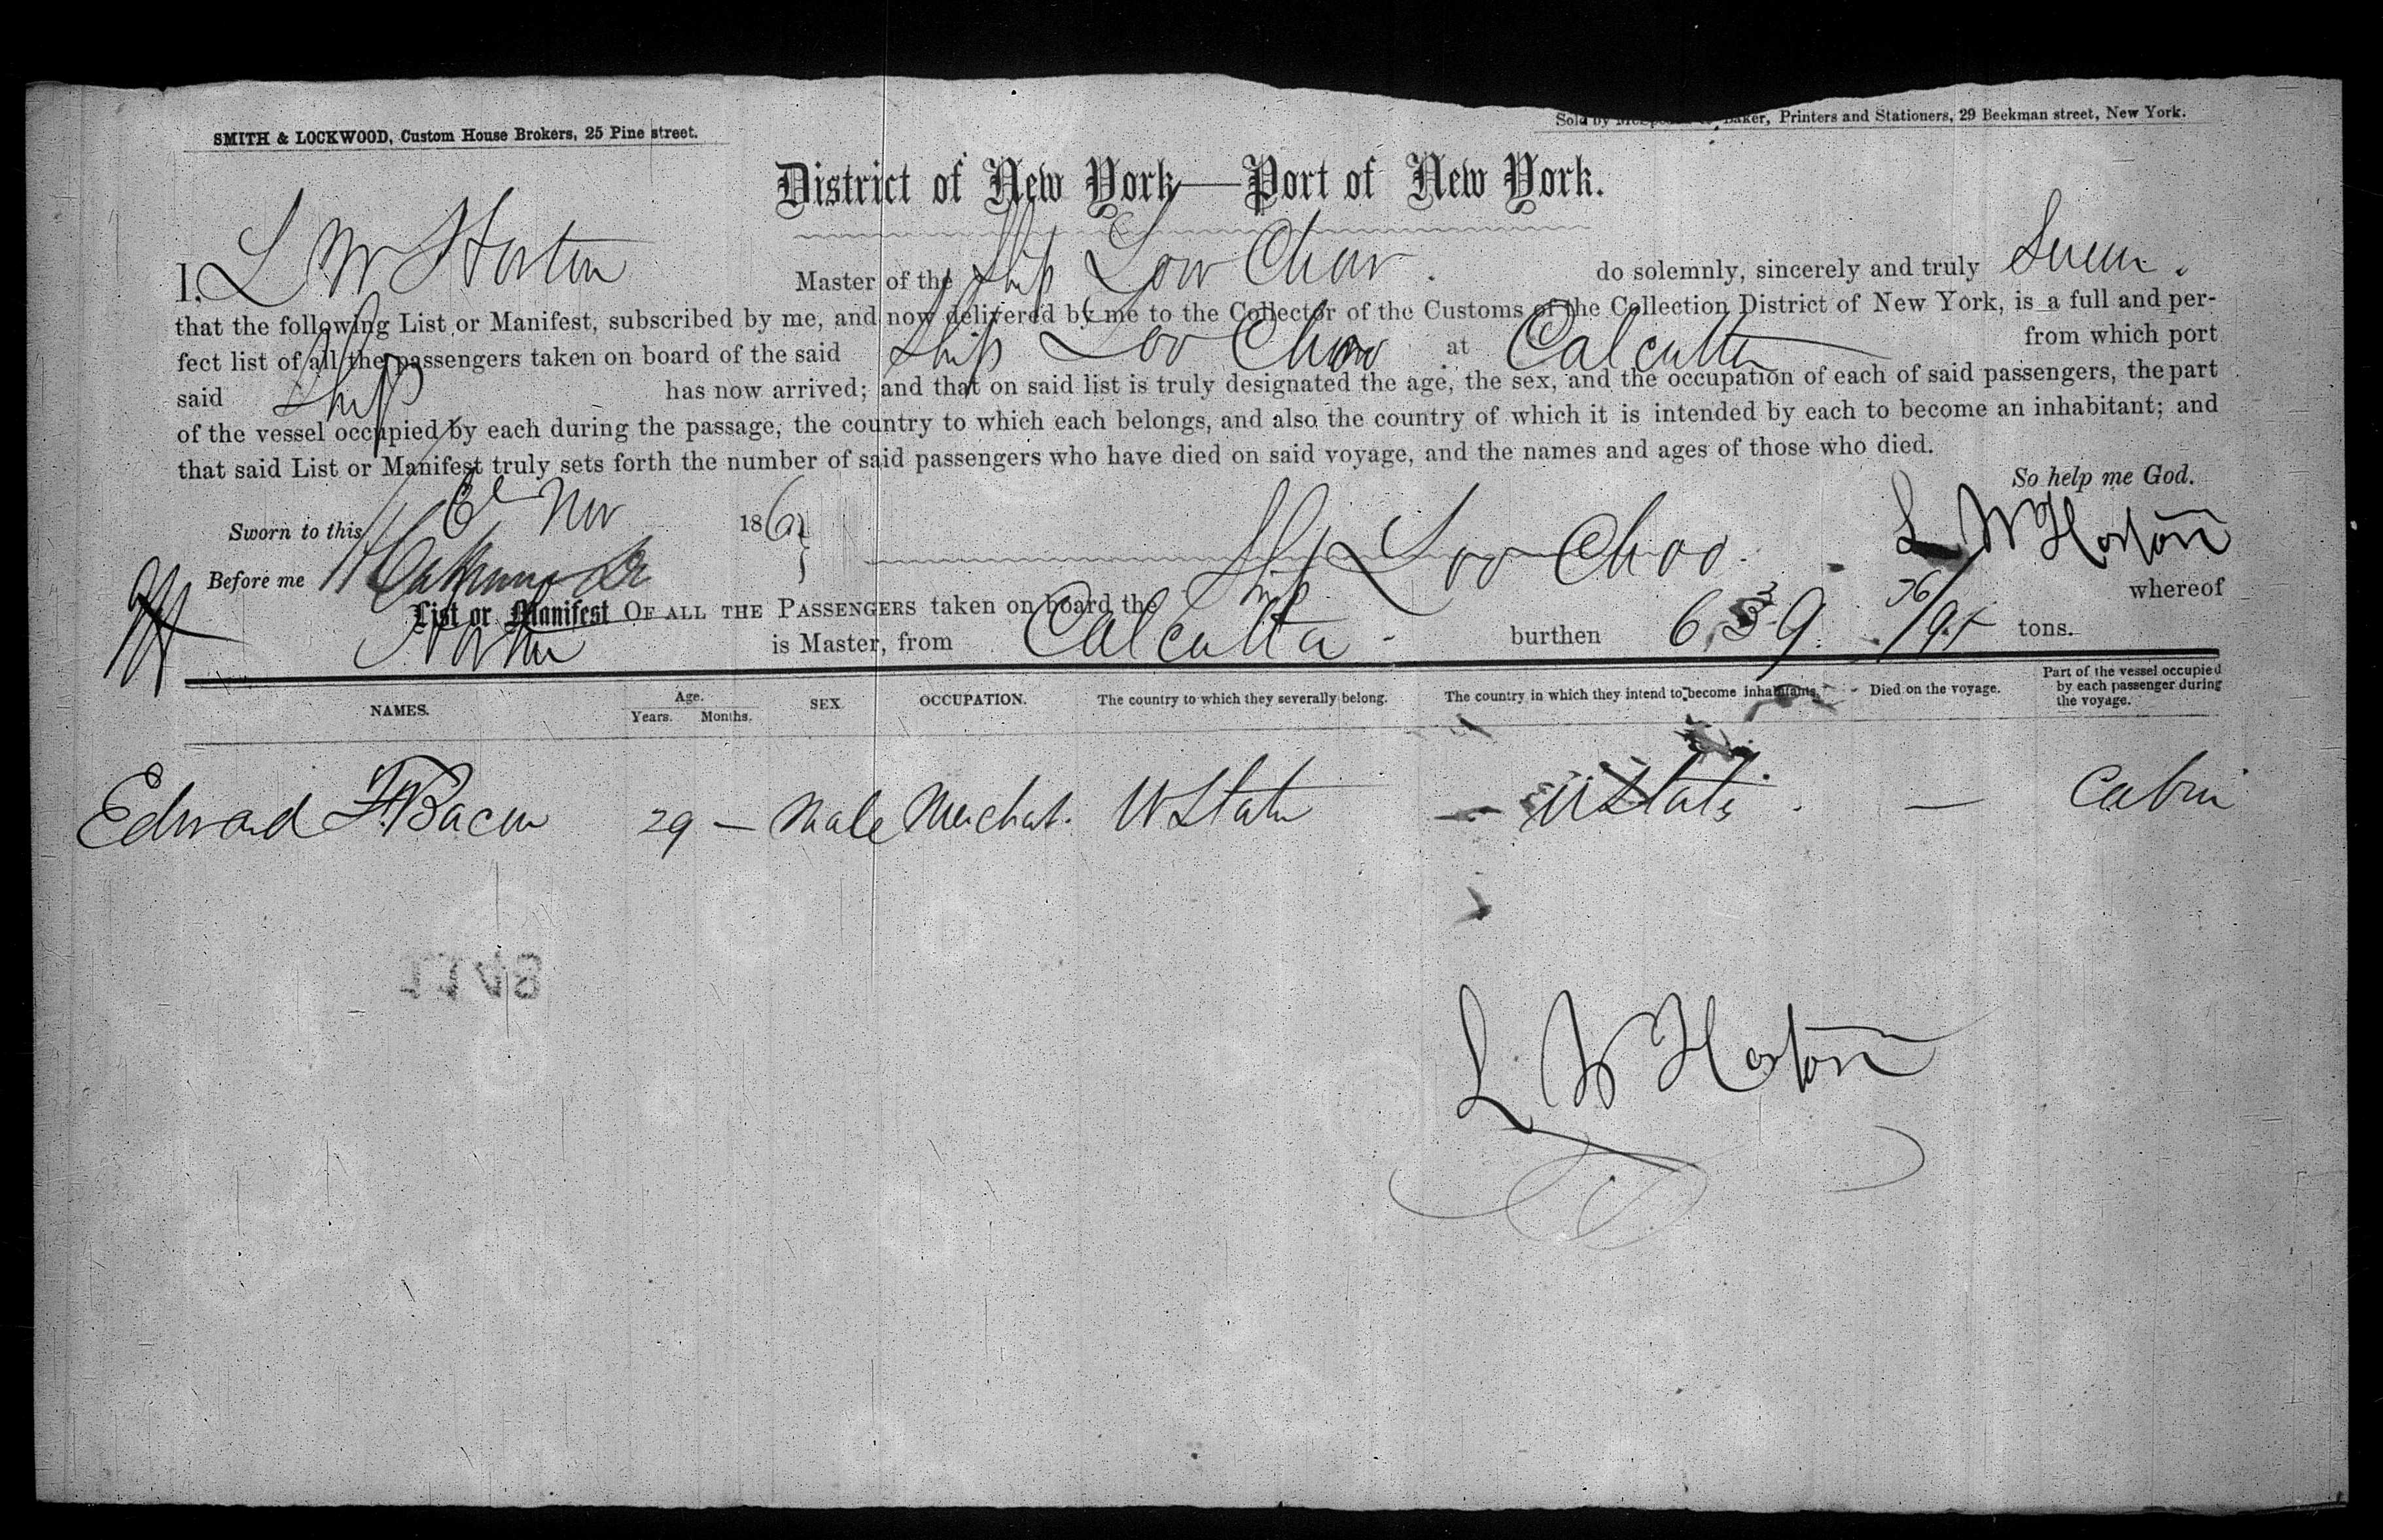 SMITH & LOCKWOOD, Custom House Brokers, 25 Pine street.
Sold by Baker, Printers and Stationers, 29 Beekman street, New York.
District of New York—Port of New York.
I, L W Horton Master of the Ship Loo Choo. do solemnly, sincerely and truly Swear.
that the following List or Manifest, subscribed by me, and now delivered by me to the Collector of the Customs of the Collection District of New York, is a full and per-
fect list of all the passengers taken on board of the said Ship Loo Choo at Calcutta from which port
said Ship has now arrived; and that on said list is truly designated the age, the sex, and the occupation of each of said passengers, the part
of the vessel occupied by each during the passage, the country to which each belongs, and also the country of which it is intended by each to become an inhabitant; and
that said List or Manifest truly sets forth the number of said passengers who have died on said voyage, and the names and ages of those who died.
So help me God.
Sworn to this Nov 186
L W Horton
Before me
List or Manifest OF ALL THE PASSENGERS taken on board the Ship Loo Choo. whereof
Horton is Master, from Calcutta - burthen 639 tons.
NAMES. Age. Years. Months. SEX. OCCUPATION. The country to which they severally belong. The country in which they intend to become inhabitants. Died on the voyage. Part of the vessel occupied by each passenger during the voyage.
Edward F. Bacon 29 — Male Merchat. U States U States. — Cabin
L W Horton